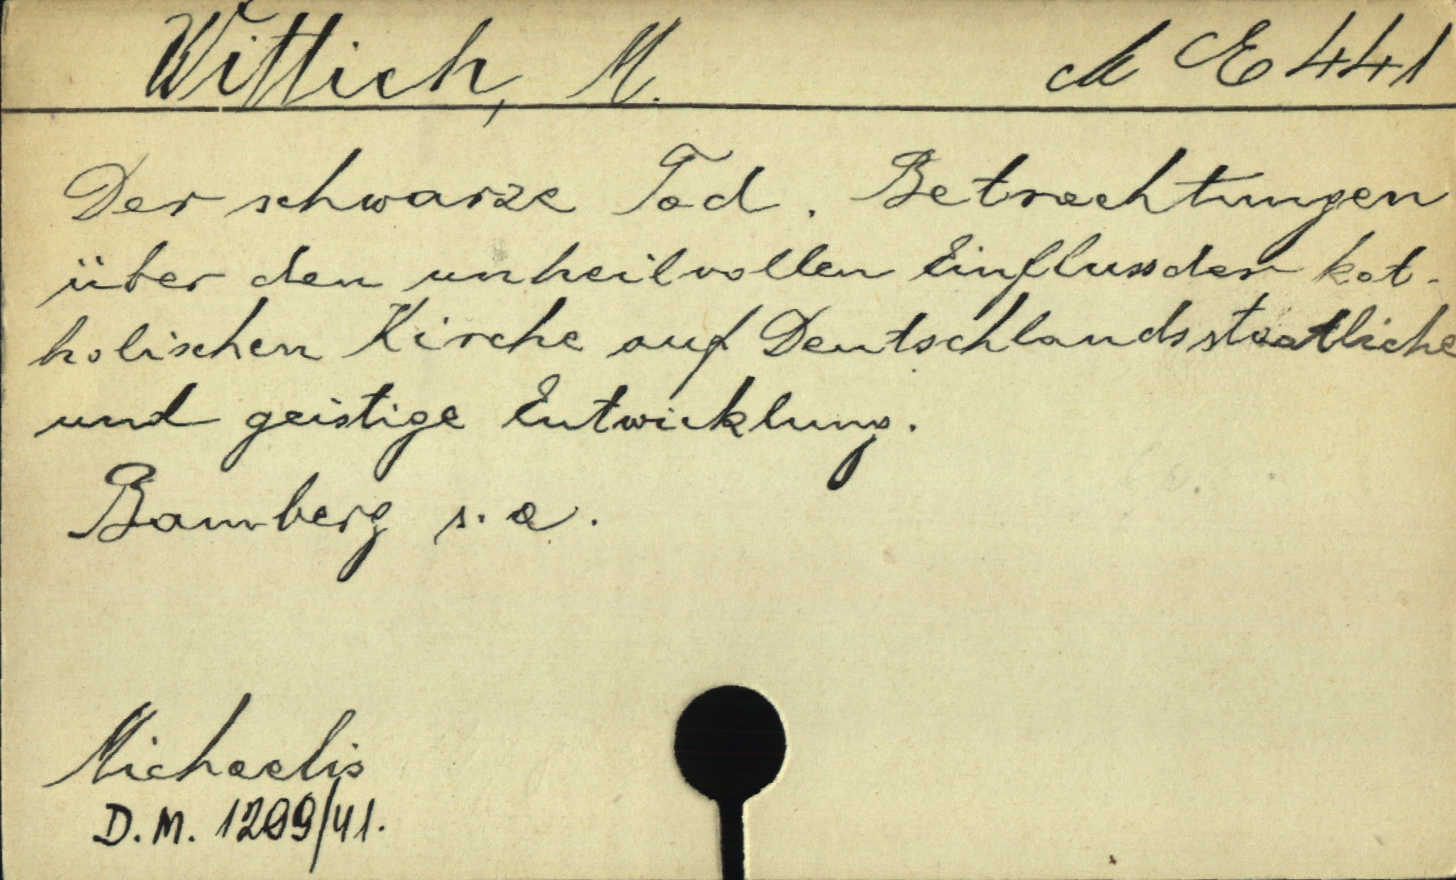 Wittich, M. ch E 441
Der schwarze Tod. Betrachtungen
über den unheilvollen Einfluss der kat-
holischen Kirche auf Deutschlands staatliche
und geistige Entwicklung.
Bamberg s.a.
Michaelis
D.M. 1299/41.